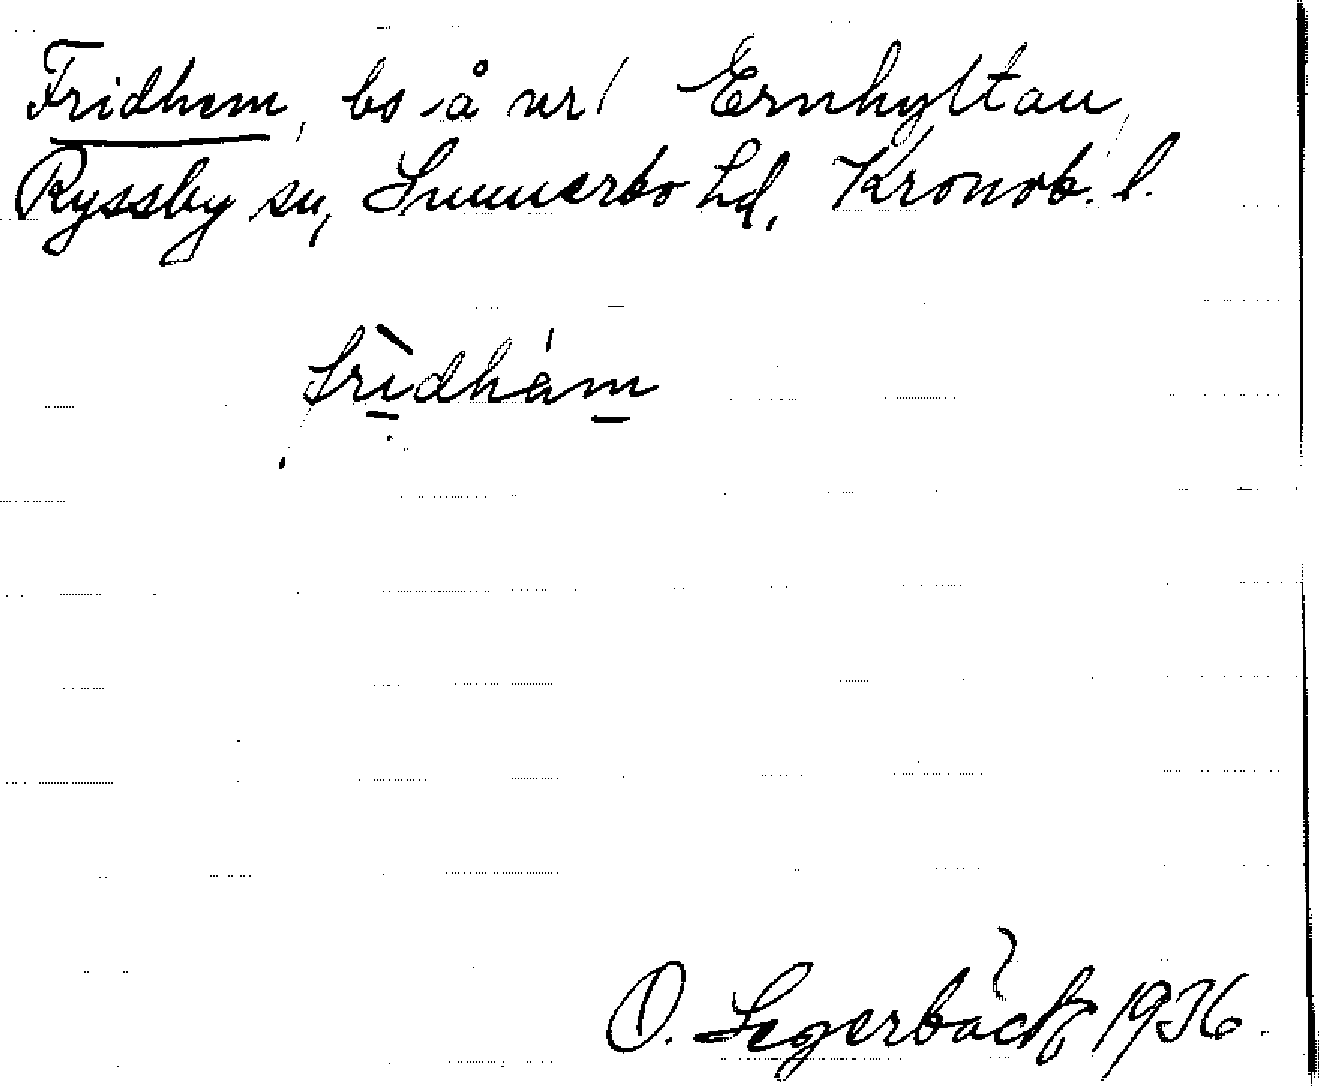 Fridhem, bs å nr 1 Ernhyltan,
Ryssby sn, Sunnerbo hd, Kronob. l.
frìdhám
O. Segerbäck 1936.